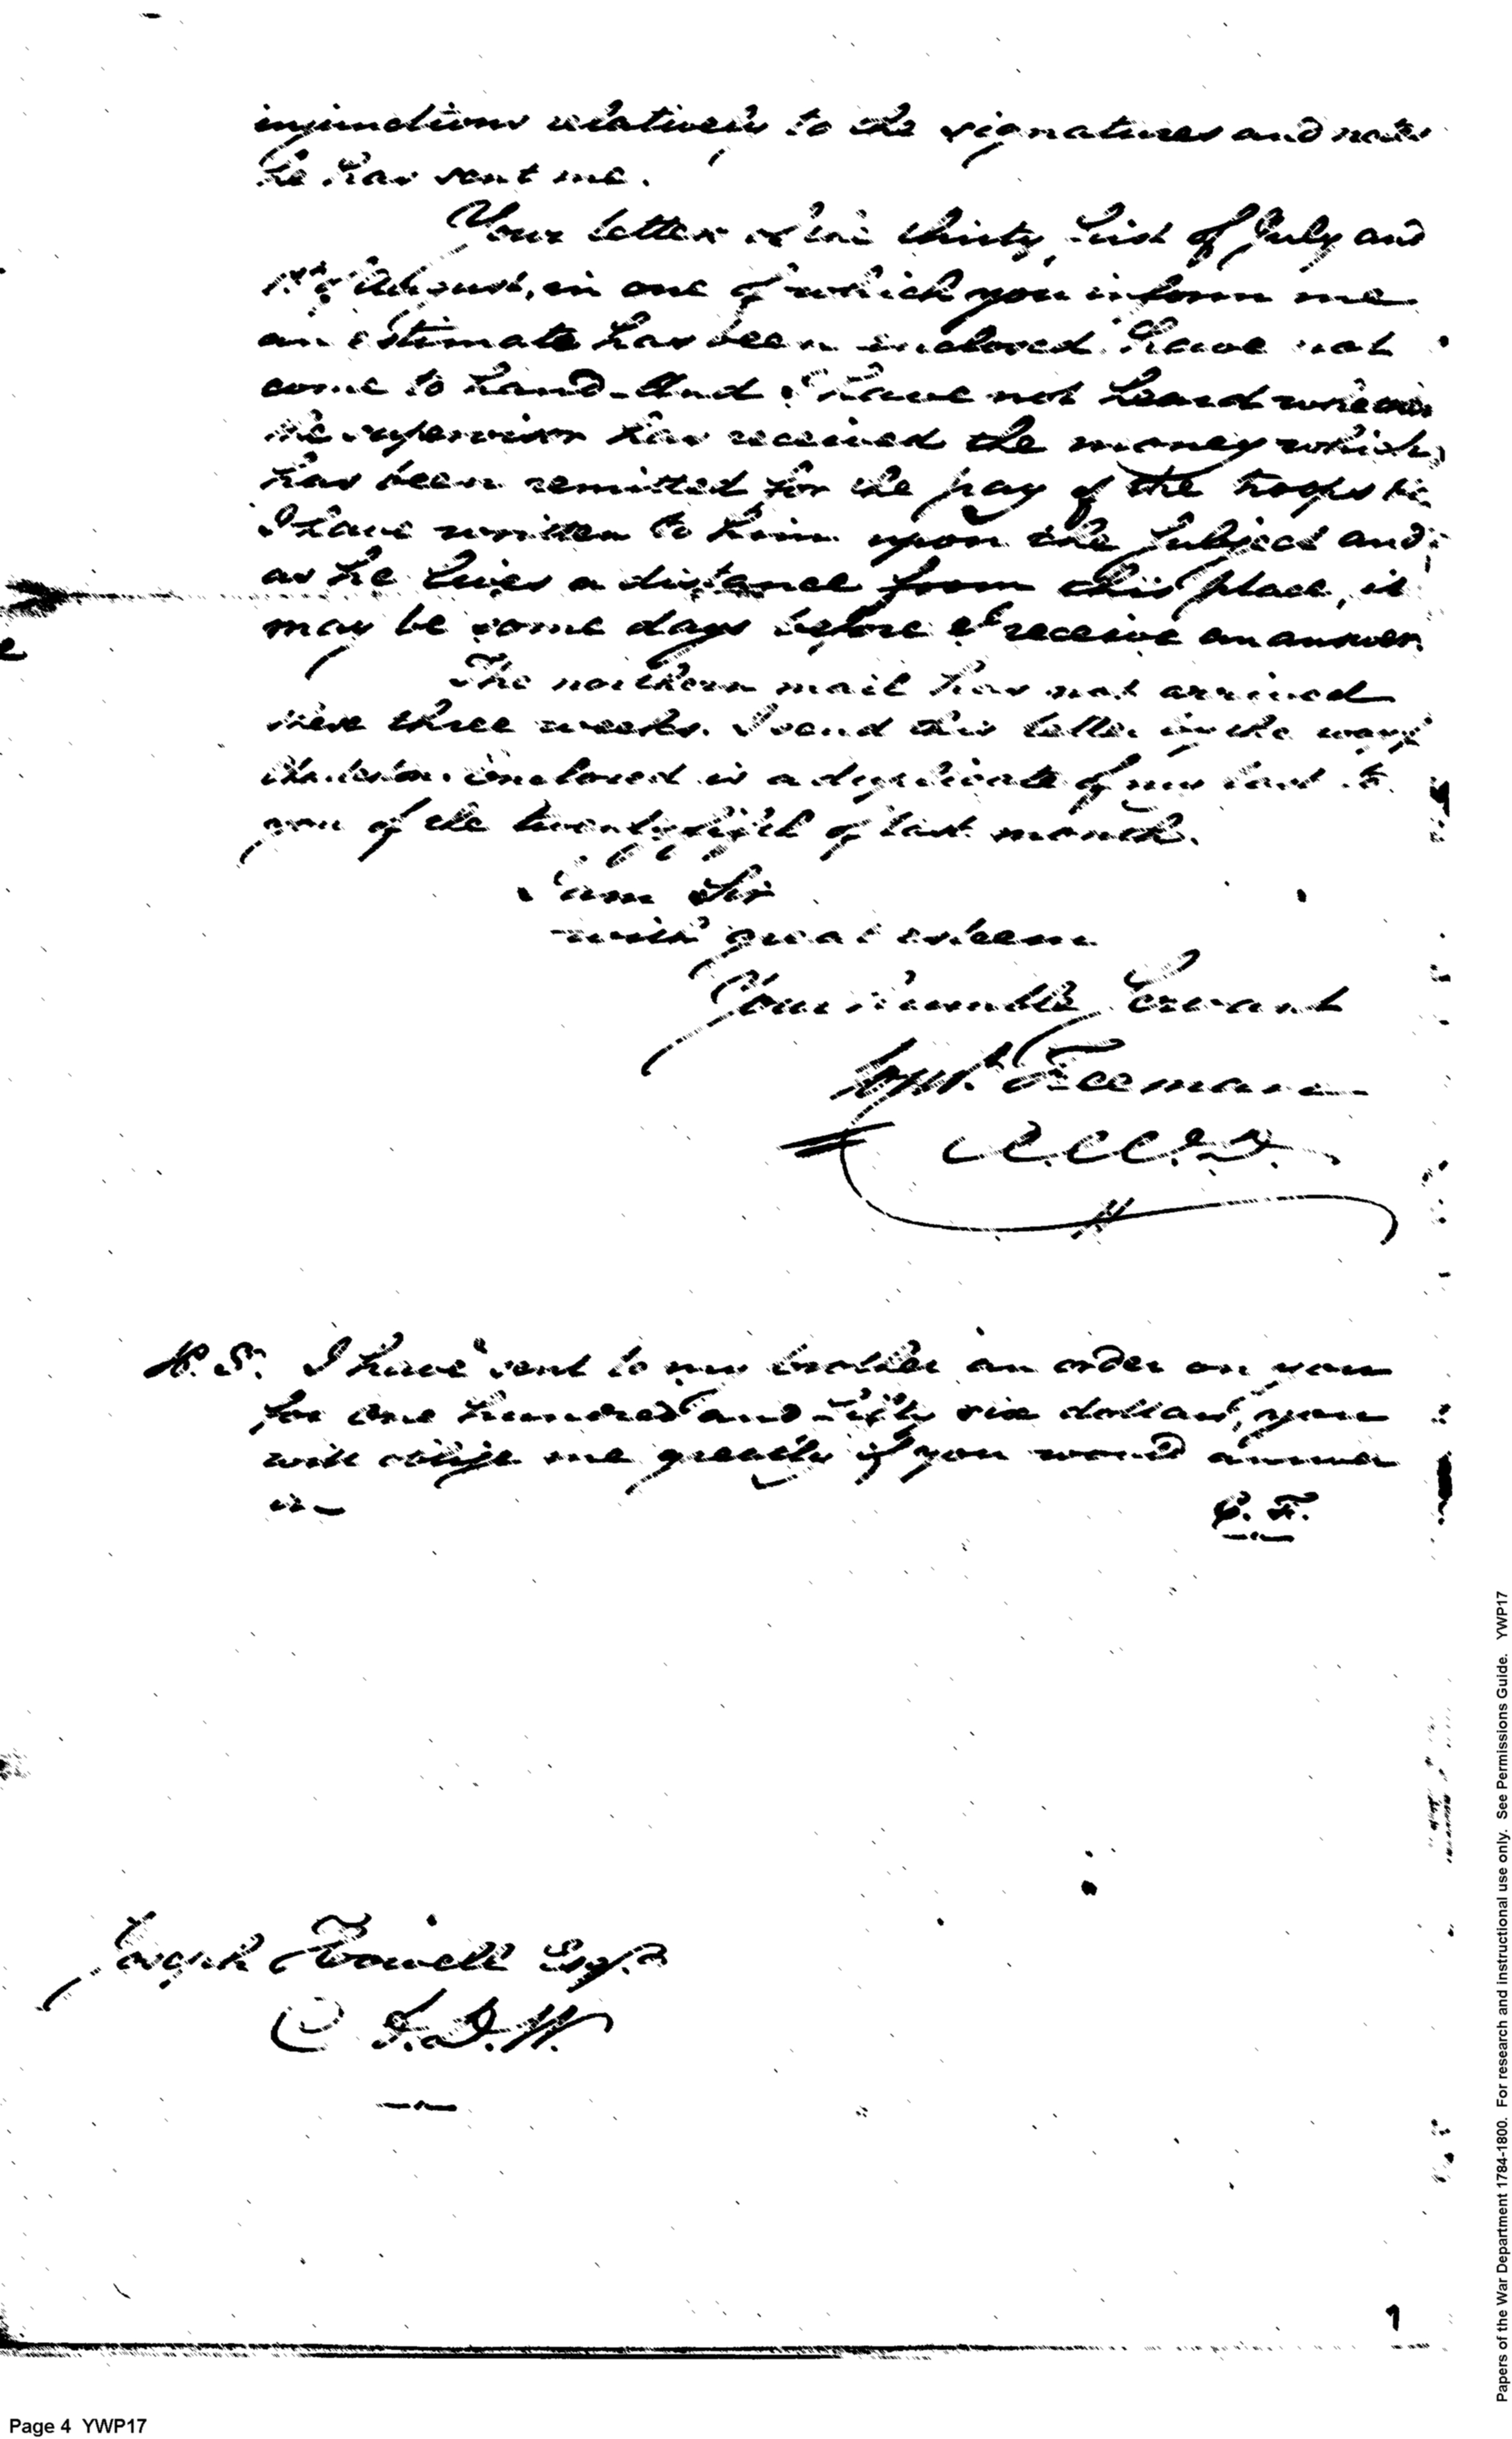 injunctions relatively to the signatures and notes
he has sent me.
Your letter of the thirty first of July and
1st of August, in one of which you inform me
an estimate has been inclosed have not
come to hand - And I have not heard whether
the supervisor has received the money which
has been remitted for the pay of the troops
I have written to him upon the subject and
as he lives a distance from this place, it
may be some days before I receive an answer
The northern mail has not arrived
these three weeks. I send this letter by the way
inclosed is a duplicate of my last to
you of the twenty fifth of last month.
I am Sir
with great esteem
Your humble Servant
Freeman
P.S. I have sent to my brother an order on you
for one hundred and fifty six dollars, you
will oblige me greatly if you would answer
it -
C. F.
Joseph Howell Esqr.
1
Page 4 YWP17
Papers of the War Department 1784-1800. For research and instructional use only. See Permissions Guide. YWP17